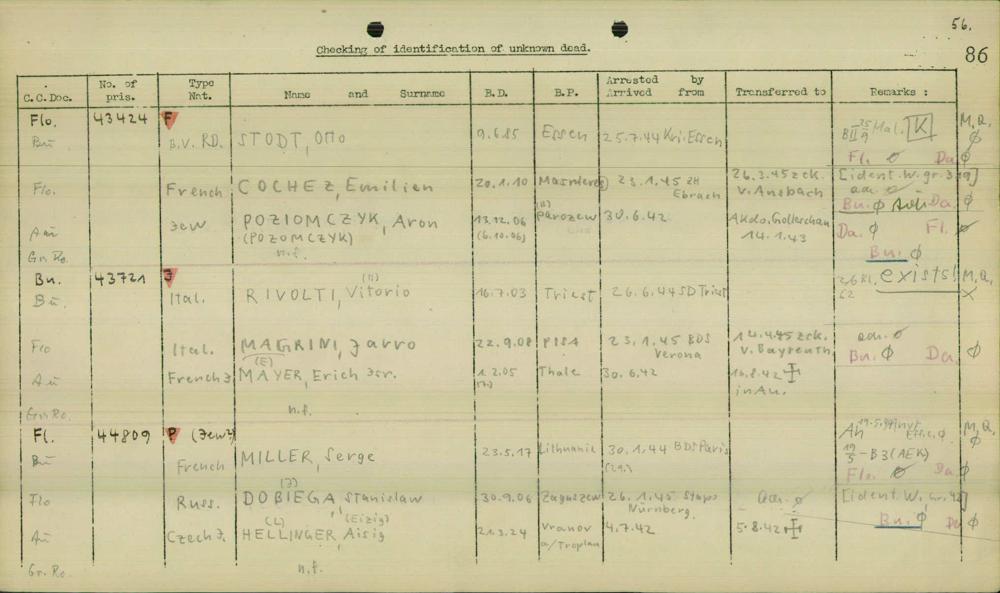 56.
86
Checking of identification of unknown dead.
C.C.Doc. No. of pris. Type Nat. Name and Surname B.D. B.P. Arrested by Arrived from Transferred to Remarks :
Flo. 43424 F M,Q,
Bu B.V. RD. STODT, Otto 9.6.85 Essen 25.7.44 Kri.Essen Mal. K ø
Fl. ø Da ø
Flo. French COCHEZ, Emilien 20.1.10 23.1.45 ZH Ebrach 26.3.45 zck. v. Ansbach [ident. W. gr. 329]
Bu. ø Da. ø
Au Jew POZIOMCZYK, Aron 13.12.06 Parozew 30.6.42 Akdo. Golleschau Da. ø Fl. ø
(POZOMCZYK) (6.10.06) 14.1.43
Gr. Ro. n.f. Bu. ø
Bu. 43721 J (11) exists! M,Q,
Bu. Ital. RIVOLTI, Vitorio 16.7.03 Triest 26.6.44 SD Triest x
Flo Ital. MAGRINI, Jarro 22.9.08 PISA 23.1.45 BDS Verona 14.4.45 zck. v. Bayreuth
Bu. ø Da. ø
(E)
Au French J. MAYER, Erich Isr. 1.2.05 Thale 30.6.42 16.8.42 in Au.
Gr. Ro. n.f.
Fl. 44809 P (Jew?) M,Q, ø
Bu French MILLER, Serge 23.5.17 Lithuania 30.1.44 BDS Paris 19/5 - B3 (AEK)
(29.1.) Flo. ø Da ø
(J)
Flo Russ. DOBIEGA, Stanislaw 30.9.06 Zaguszew 26.1.45 Stapo Nürnberg. [ident. W. gr. 42]
Bu. ø Da ø
(L) (Eizig)
Au Czech J. HELLINGER, Aisig 21.3.24 Vranov a/Troplau 4.7.42 5.8.42
Gr. Ro. n.f.